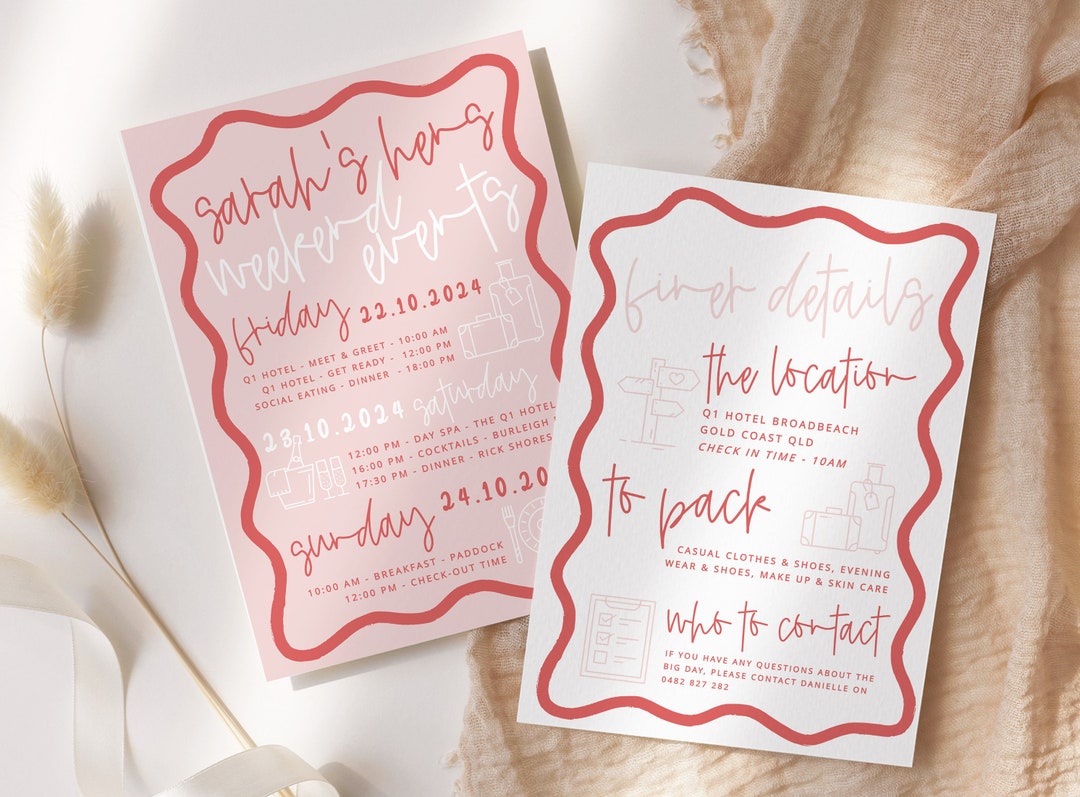 sarah's hens
weekend
events
friday 22.10.2024
Q1 HOTEL - MEET & GREET - 10:00 AM
Q1 HOTEL - GET READY - 12:00 PM
SOCIAL EATING - DINNER - 18:00 PM
23.10.2024 saturday
12:00 PM - DAY SPA - THE Q1 HOTEL
16:00 PM - COCKTAILS - BURLEIGH
17:30 PM - DINNER - RICK SHORES
sunday 24.10.20
10:00 AM - BREAKFAST - PADDOCK
12:00 PM - CHECK-OUT TIME
finer details
the location
Q1 HOTEL BROADBEACH
GOLD COAST QLD
CHECK IN TIME - 10AM
to pack
CASUAL CLOTHES & SHOES, EVENING
WEAR & SHOES, MAKE UP & SKIN CARE
who to contact
IF YOU HAVE ANY QUESTIONS ABOUT THE
BIG DAY, PLEASE CONTACT DANIELLE ON
0482 827 282